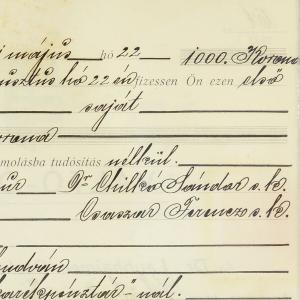 május hó 22 1000. Korona
hó 22 én fizessen Ön ezen első
saját
molásba tudósítás nélkül.
Dr Chilkó Sándor s. k.
Csaszar Ferencz s. k.
takarékpénztár"-nál.